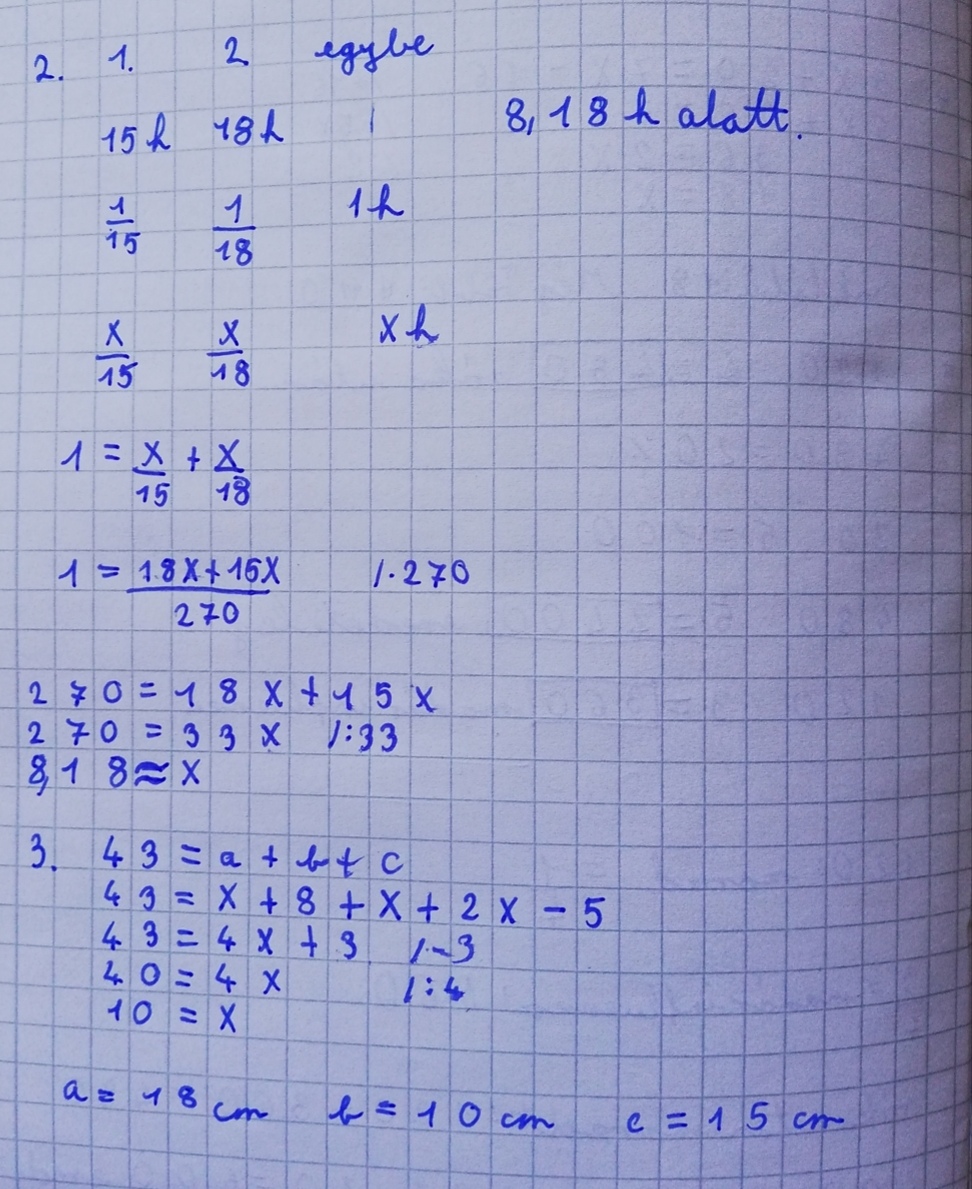 2. 1. 2 egybe
15h 18h 8,18 h alatt.
1/15 1/18 1h
x/15 x/18 x h
1 = x/15 + x/18
1 = (18x+15x)/270 /·270
270 = 18x + 15x
270 = 33x /:33
8,18 ≈ x
3. 43 = a + b + c
43 = x + 8 + x + 2x - 5
43 = 4x + 3 /-3
40 = 4x /:4
10 = x
a = 18 cm b = 10 cm c = 15 cm